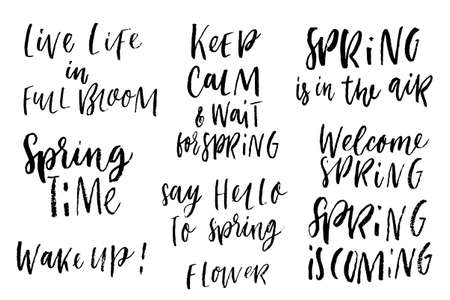 Live Life
in
FULL BLOOM
Spring
TiMe
Wake up!
KEEP
CALM
& Wait
for SPRiNG
say HeLLO
To spring
FLOWER
SPRiNG
is in the aiR
Welcome
SPRiNG
SPRiNG
iS COMiNG